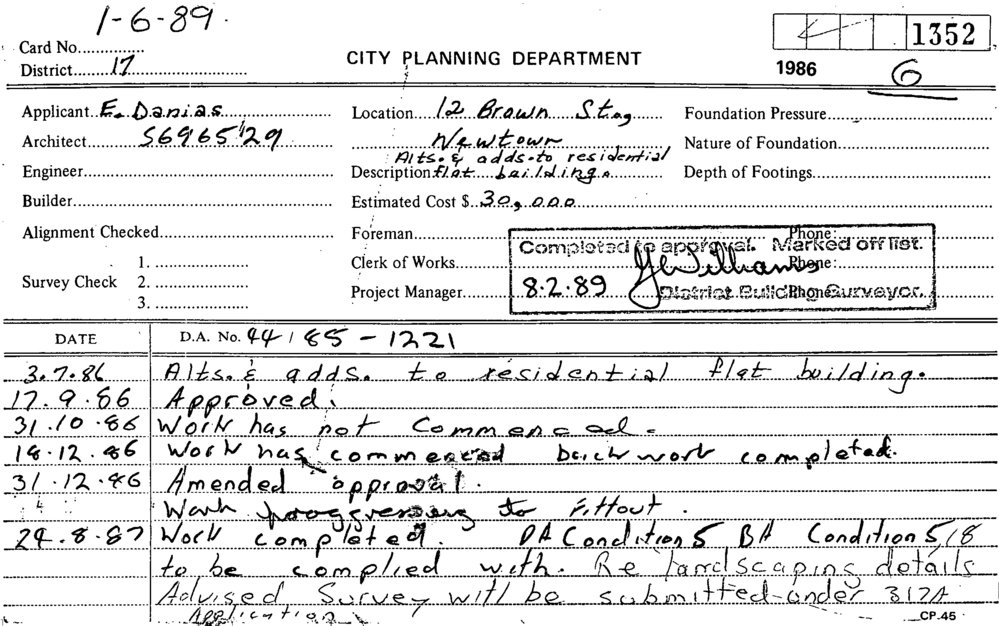 1-6-89.
Card No...............
District........17
CITY PLANNING DEPARTMENT
1352
1986
6
Applicant..E. Danias
Architect........5696529
Engineer
Builder
Alignment Checked
Survey Check
1.
2.
3.
Location....12 Brown St.,
Newtown
Alts. & adds. to residential
Description flat building.
Estimated Cost $..30,000
Foreman
Clerk of Works
Project Manager
Foundation Pressure
Nature of Foundation
Depth of Footings
Phone:
Phone:
Phone:
Completed to approval. Marked off list.
8.2.89
Williams
District Building Surveyor.
DATE
D.A. No. 44/85-1221
3.7.86 Alts. & adds. to residential flat building.
17.9.86 Approved.
31.10.86 Work has not Commenced.
18.12.86 Work has commenced brickwork completed.
31.12.86 Amended approval.
Work proggressing to Fittout.
24.8.87 Work completed. DA Condition 5 BA Condition 5/8
to be complied with. Re landscaping details
Advised Survey will be submitted under 317A
Application
CP.45